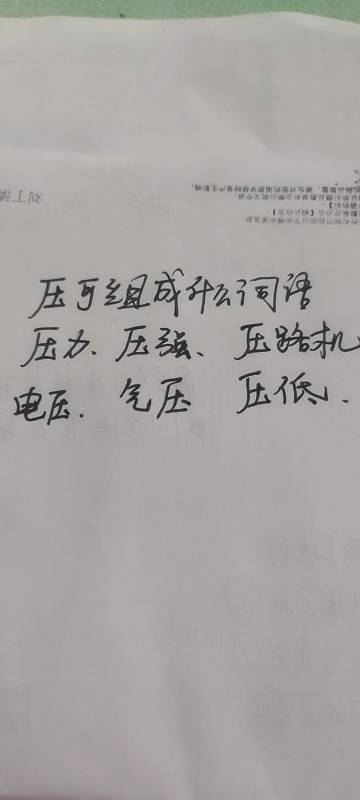 压可组成什么词语
压力、压强、压路机
电压、气压 压低、